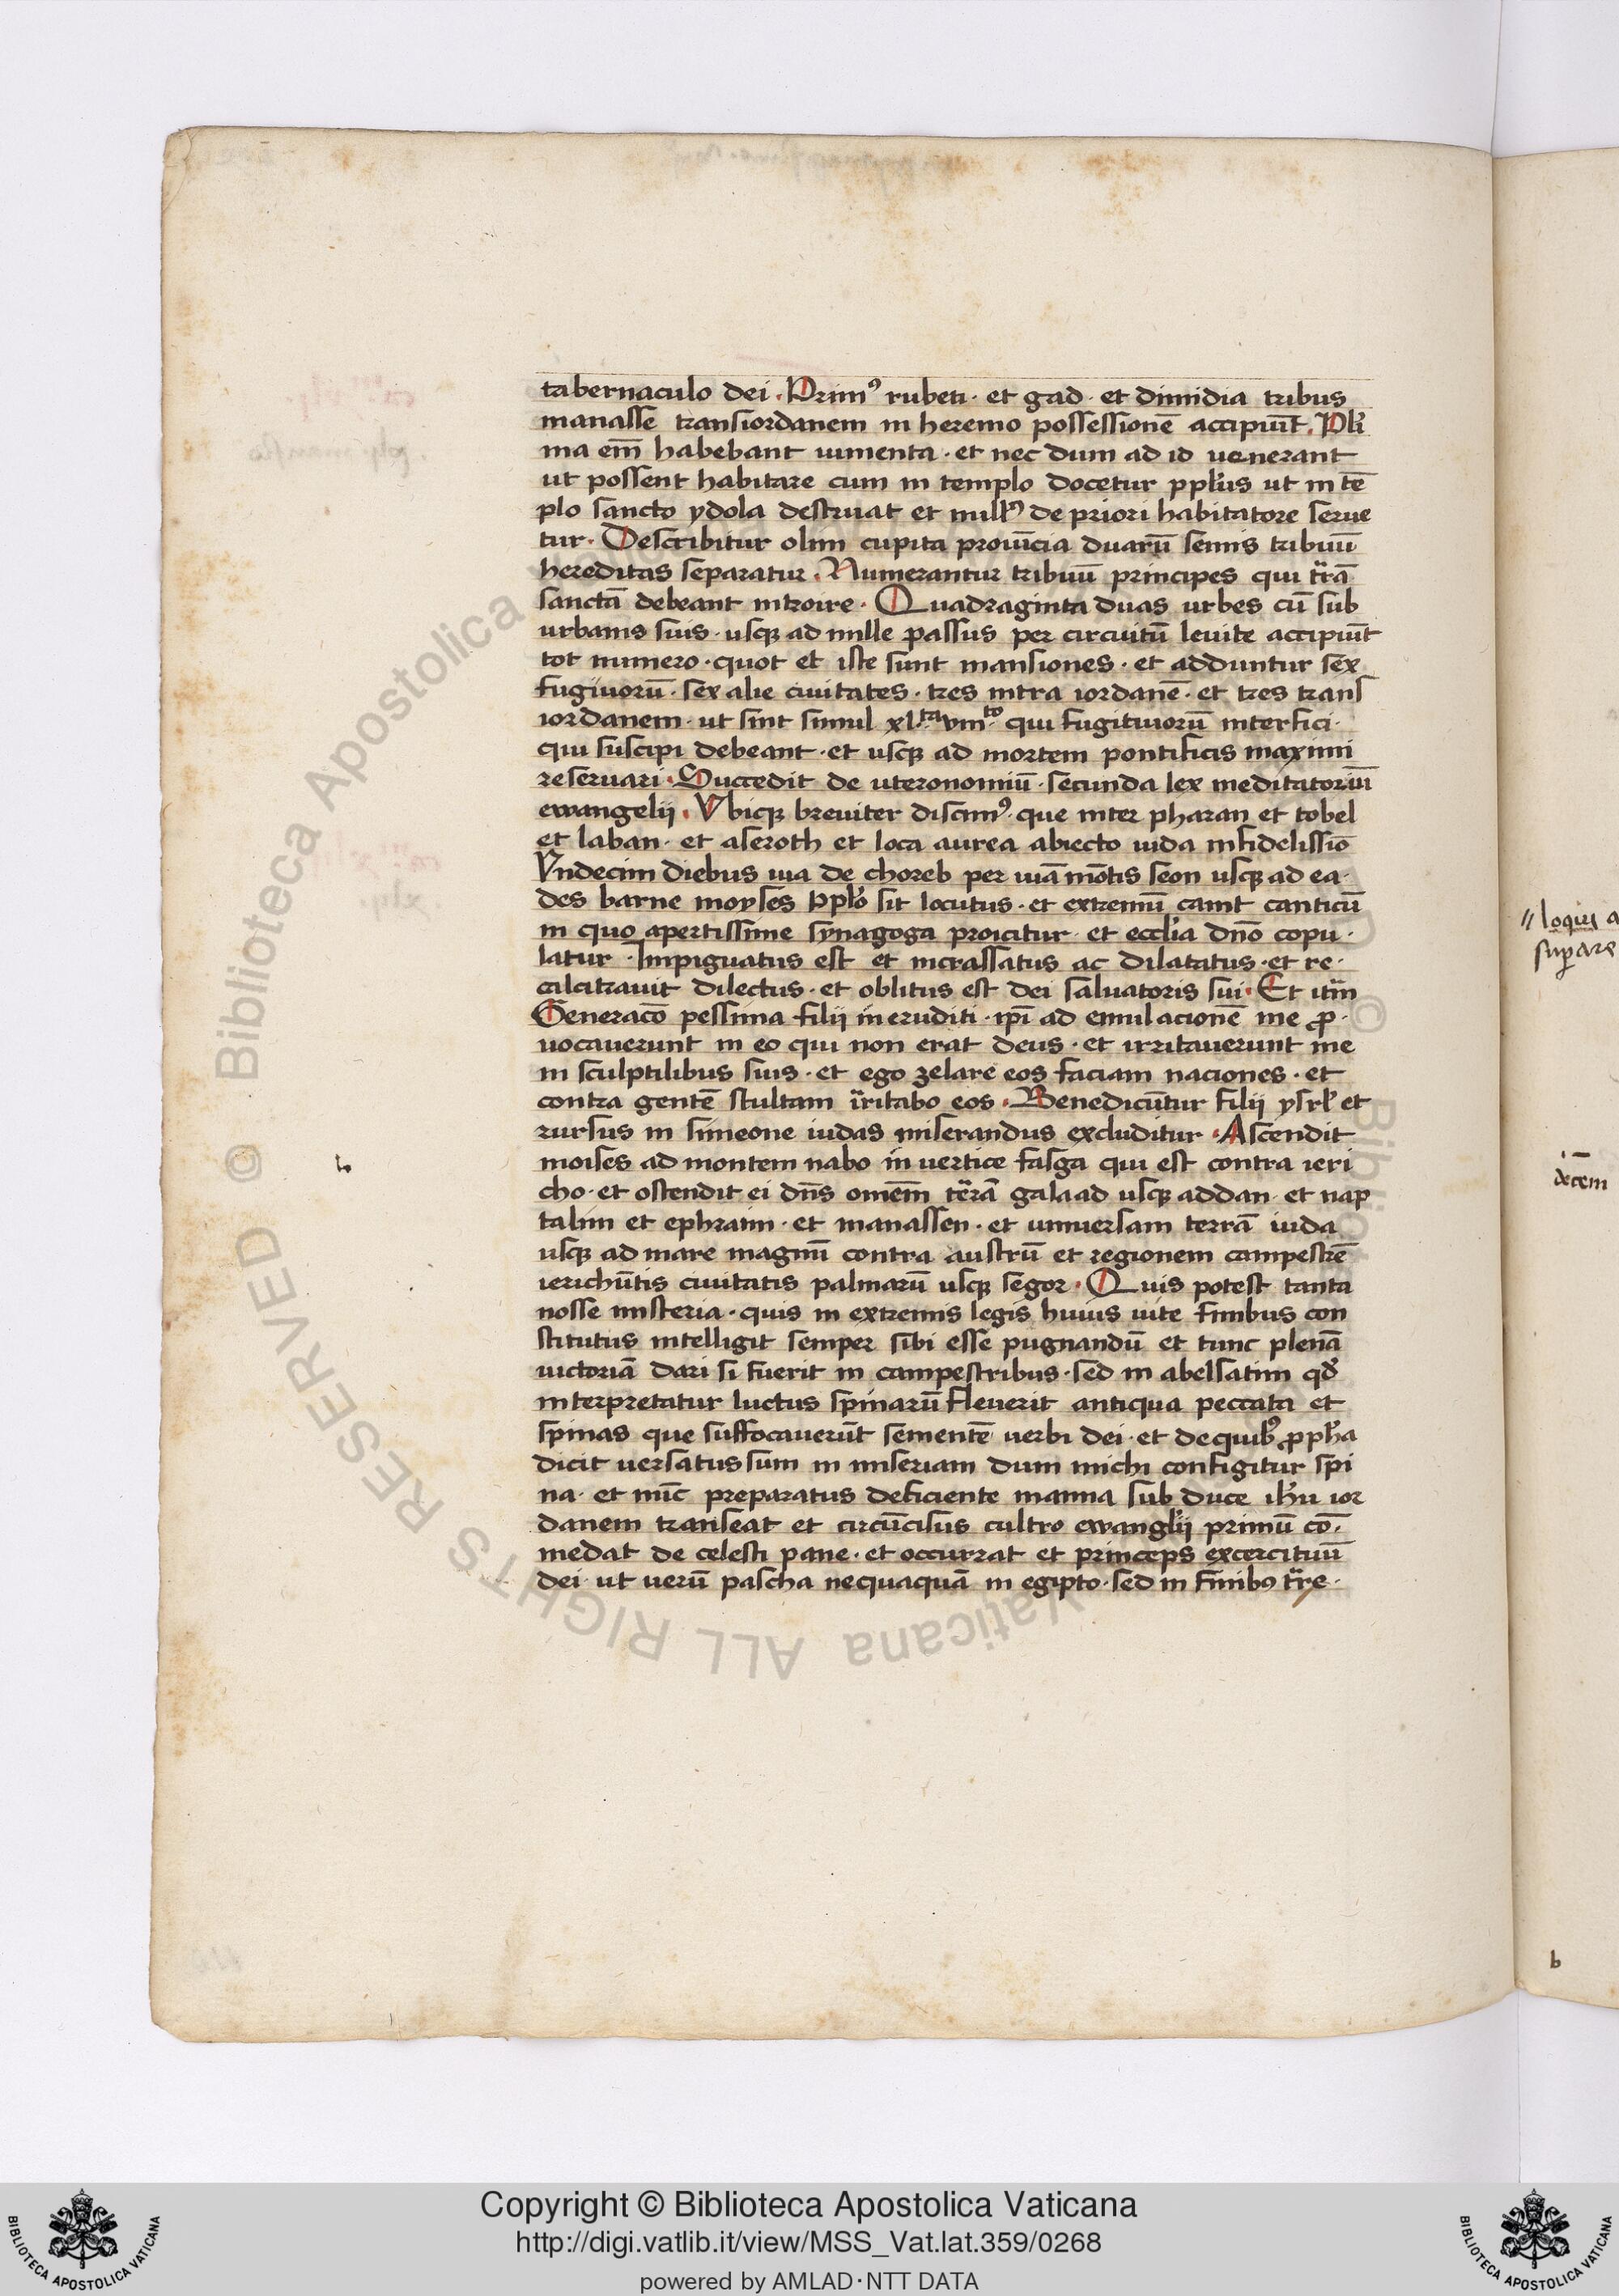 tabernaculo dei · Primꝰ rubeti · et gad · et dimidia tribus
manasse transiordanem in heremo possessionē accipiūt . Plꝛi
ma em̄ habebant iumenta · et nec dum ad id venerant
ut possent habitare cum in templo docetur pplꝛus ut in tē
plo sancto ydola destruat et nullꝰ de priori habitatore serue
tur · Describitur olim cupita prouīcia duarū semis tribuū
hereditas separatur . Numerantur tribuū principes qui t̄rā
sanctā debeant introire · Quadraginta duas urbes cū sub
urbanis suis · usqꝫ ad mille passus per circuitū leuite accipiūt
tot numero · quot et iste sunt mansiones · et adduntur sex
fugiuorū · sex alie ciuitates · tres intra iordanē · et tres trans
iordanem · ut sint simul xl.ta vm.to qui fugitiuorū interfici ·
qui suscipi debeant · et usqꝫ ad mortem pontificis maximi
reseruari · Succedit de uteronomiū · secunda lex meditatoriū
ewangelij . Vbiqꝫ breuiter discimꝰ · que inter pharan et tobel
et laban · et aseroth et loca aurea abiecto iuda infidelissīo
Vndecim diebus uia de choreb per uiā mōtis seon usqꝫ ad ca ·
des barne moyses pplo̅ sit locutus · et extremū canit canticū
in quo apertissime synagoga proicitur · et eccl̄ia dn̄o copu ·
latur · Impiguatus est et incrassatus ac dilatatus · et re ·
calcitrauit dilectus · et oblitus est dei saluatoris sui · Et itm̄
Generacō pessima filij in eruditi · ip̄i ad emulacionē me ꝓ ·
uocauerunt in eo qui non erat deus · et irritauerunt me
in sculptilibus suis · et ego zelare eos faciam naciones · et
contra gentē stultam ir̄itabo eos · Benedicūtur filij ysrl̄ et
rursus in simeone iudas miserandus excluditur · Ascendit
moises ad montem nabo in uertice fasga qui est contra ieri
cho · et ostendit ei dn̄s omēm t̄erā galaad usqꝫ addan · et nap
talim et ephraim · et manassen · et uniuersam terrā iuda
usqꝫ ad mare magnū contra austrū et regionem campestrē
ierichūtis ciuitatis palmarū usqꝫ segor · Quis potest tanta
nosse misteria · quis in extremis legis huius uite finibus con
stitutus intelligit semper sibi esse pugnandū et tunc plenā
uictoriā dari si fuerit in campestribus · sed in abelsatim qd̄
interpretatur luctus spinarū fleuerit antiqua peccata et
spinas que suffocauerūt sementē uerbi dei · et dequibꝰ ꝓph̄a
dicit uersatus sum in miseriam dum michi configitur spi
na · et nūc preparatus deficiente manna sub duce ih̄u ior
danem transeat et circūcisus cultro ewangl̄ij primū cō ·
medat de celesti pane · et occurrat et princeps excercituū
dei · ut uerū pascha nequaquā in egipto · sed in finibꝰ t̄re ·
// loquiꝭ a
superare
decem
b
Copyright © Biblioteca Apostolica Vaticana
http://digi.vatlib.it/view/MSS_Vat.lat.359/0268
powered by AMLAD·NTT DATA
BIBLIOTECA APOSTOLICA VATICANA
BIBLIOTECA APOSTOLICA VATICANA
ALL RIGHTS RESERVED © Biblioteca Apostolica Vaticana